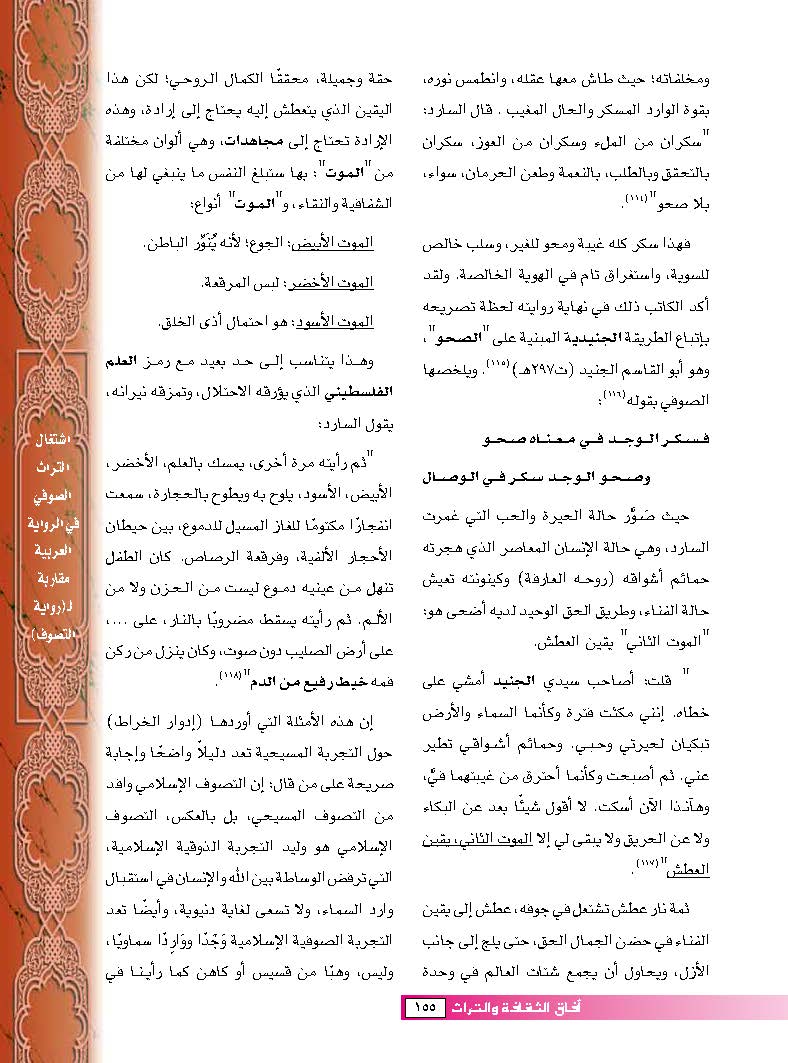 ومخلفاته؛ حيث طاش معها عقله، وانطمس نوره،
بقوة الوارد المسكر والحال المغيب . قال السارد:
"سكران من الملء وسكران من العوز، سكران
بالتحقق وبالطلب، بالنعمة وطعن الحرمان، سواء،
بلا صحو"(١١٤).
فهذا سكر كله غيبة ومحو للغير، وسلب خالص
للسوية، واستغراق تام في الهوية الخالصة. ولقد
أكد الكاتب ذلك في نهاية روايته لحظة تصريحه
بإتباع الطريقة الجنيدية المبنية على "الصحو"،
وهو أبو القاسم الجنيد (ت٢٩٧هـ)(١١٥). ويلخصها
الصوفي بقوله(١١٦):
فسكر الوجد في معناه صحو
وصحو الوجد سكر في الوصال
حيث صَوَّر حالة الحيرة والحب التي غمرت
السارد، وهي حالة الإنسان المعاصر الذي هجرته
حمائم أشواقه (روحه العارفة) وكينونته تعيش
حالة الفناء، وطريق الحق الوحيد لديه أضحى هو:
"الموت الثاني" يقين العطش.
" قلت: أصاحب سيدي الجنيد أمشي على
خطاه. إنني مكثت فترة وكأنما السماء والأرض
تبكيان لحيرتي وحبي. وحمائم أشواقي تطير
عني. ثم أصبحت وكأنما أحترق من غيبتهما فيَّ،
وهأنذا الآن أسكت. لا أقول شيئًا بعد عن البكاء
ولا عن الحريق ولا يبقى لي إلا الموت الثاني، يقين
العطش"(١١٧).
ثمة نار عطش تشتعل في جوفه، عطش إلى يقين
الفناء في حضن الجمال الحق، حتى يلج إلى جانب
الأزل، ويحاول أن يجمع شتات العالم في وحدة
حقة وجميلة، محققًا الكمال الروحي؛ لكن هذا
اليقين الذي يتعطش إليه يحتاج إلى إرادة، وهذه
الإرادة تحتاج إلى مجاهدات، وهي ألوان مختلفة
من "الموت"؛ بها ستبلغ النفس ما ينبغي لها من
الشفافية والنقاء، و"الموت" أنواع:
الموت الأبيض: الجوع؛ لأنه يُنَوِّر الباطن.
الموت الأخضر: لبس المرقعة.
الموت الأسود: هو احتمال أذى الخلق.
وهذا يتناسب إلى حد بعيد مع رمز العلم
الفلسطيني الذي يؤرقه الاحتلال، وتمزقه نيرانه،
يقول السارد:
"ثم رأيته مرة أخرى، يمسك بالعلم، الأخضر،
الأبيض، الأسود، يلوح به ويطوح بالحجارة، سمعت
انفجارًا مكتومًا للغاز المسيل للدموع، بين حيطان
الأحجار الألفية، وفرقعة الرصاص. كان الطفل
تنهل من عينيه دموع ليست من الحزن ولا من
الألم. ثم رأيته يسقط مضروبًا بالنار، على ...،
على أرض الصليب دون صوت، وكان ينزل من ركن
فمه خيط رفيع من الدم"(١١٨).
إن هذه الأمثلة التي أوردها (إدوار الخراط)
حول التجربة المسيحية تعد دليلاً واضحًا وإجابة
صريحة على من قال؛ إن التصوف الإسلامي وافد
من التصوف المسيحي، بل بالعكس، التصوف
الإسلامي هو وليد التجربة الذوقية الإسلامية،
التي ترفض الوساطة بين الله والإنسان في استقبال
وارد السماء، ولا تسعى لغاية دنيوية، وأيضًا تعد
التجربة الصوفية الإسلامية وَجْدًا ووَارِدًا سماويًا،
وليس، وهبًا من قسيس أو كاهن كما رأينا في
اشتغال
التراث
الصوفي
في الرواية
العربية
مقاربة
لـ(رواية
التصوف)
آفاق الثقافة والتراث ١٥٥